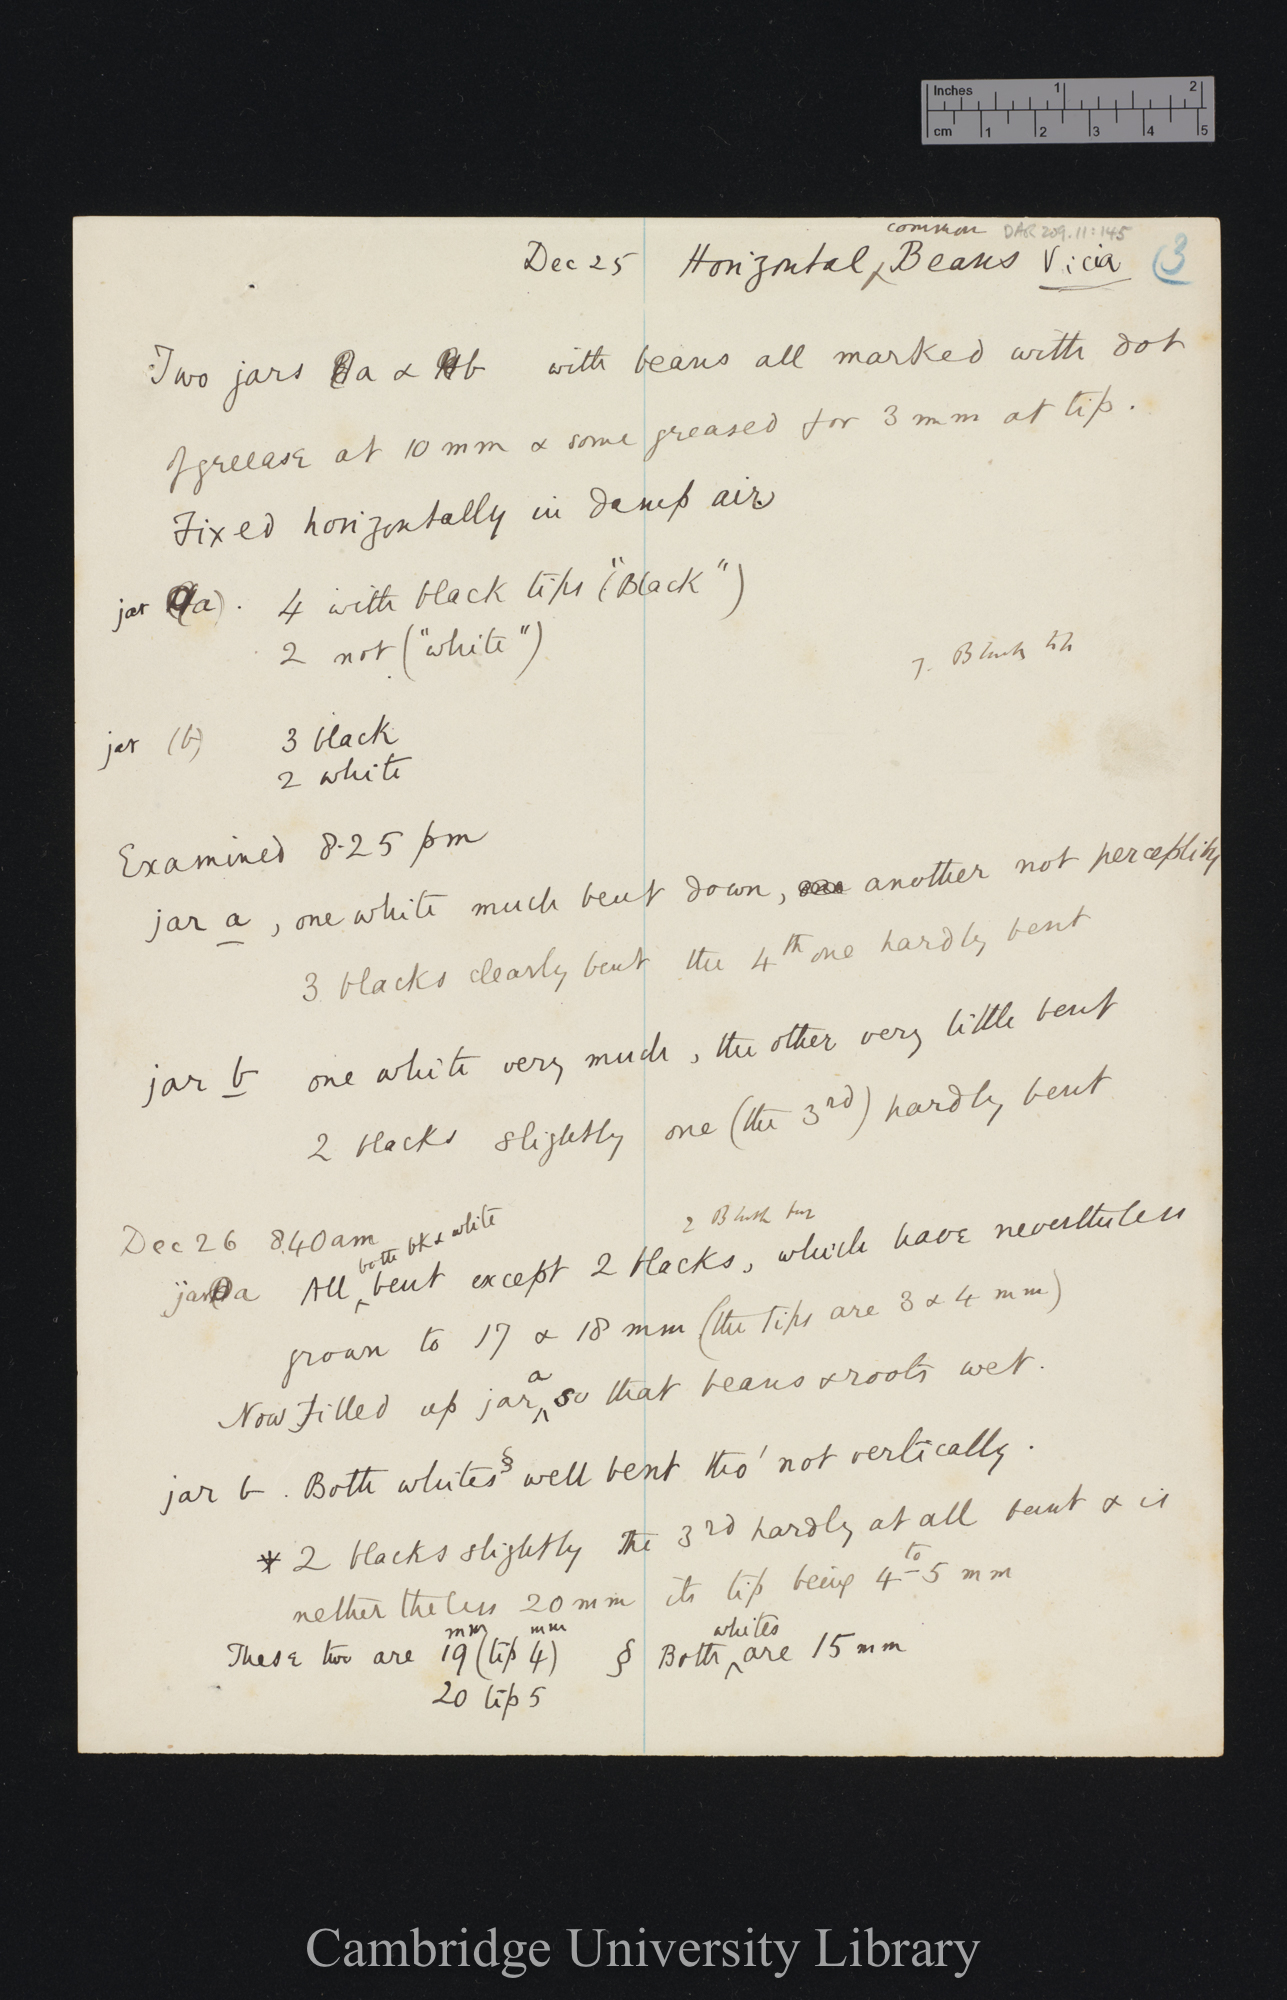 Inches 1 2
cm 1 2 3 4 5
common DAR 209.11:145
Dec 25 Horizontal Beans Vicia (3
Two jars a & b with beans all marked with dot
of greease at 10 mm & some greased for 3 mm at tip.
Fixed horizontally in damp air
jar (a). 4 with black tips ("Black")
2 not ("white")
7. Black tip
jar (b) 3 black
2 white
Examined 8.25 pm
jar a, one white much bent down, one another not perceptibly
3 blacks clearly bent the 4th one hardly bent
jar b one white very much, the other very little bent
2 blacks slightly one (the 3rd) hardly bent
Dec 26 8.40 am
both bk & white
2 Black
jar a All bent except 2 blacks, which have nevertheless
grown to 17 & 18 mm (the tips are 3 & 4 mm)
Now filled up jar a so that beans & roots wet.
jar b. Both whites § well bent tho' not vertically.
* 2 blacks slightly The 3rd hardly at all bent & is
netherthe less 20 mm its tip being 4 to 5 mm
mm mm whites
These two are 19 (tip 4) § Both are 15 mm
20 tip 5
Cambridge University Library